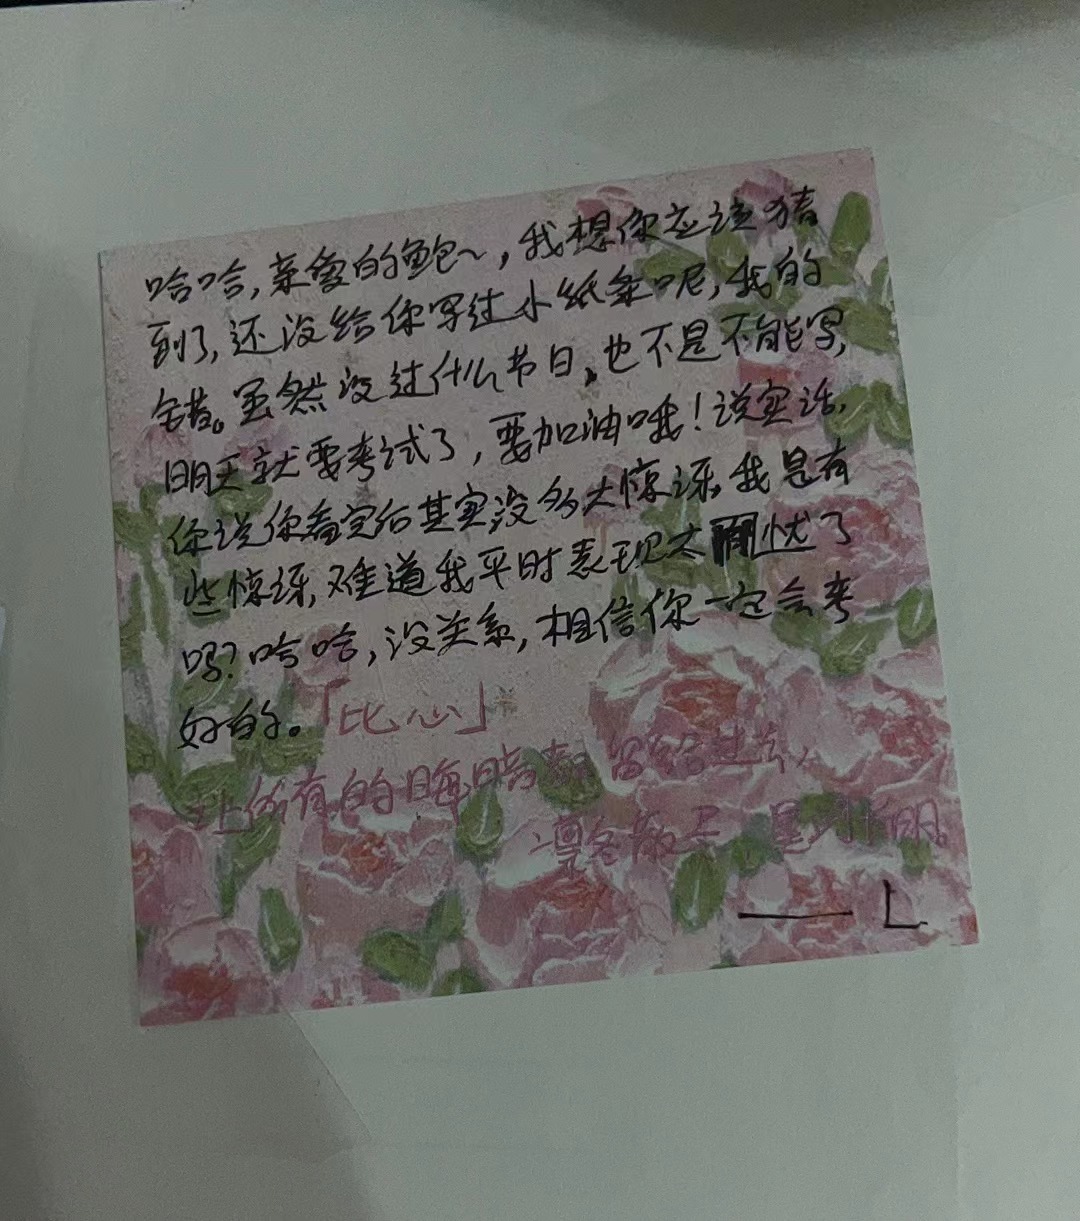 哈哈,亲爱的鲍~,我想你应该猜
到了,还没给你写过小纸条呢,我的
错。虽然没过什么节日,也不是不能写,
明天就要考试了,要加油哦!说实话,
你说你看完后其实没多大惊讶,我是有
些惊讶,难道我平时表现太 忧了
吗?哈哈,没关系,相信你一定会考
好的。「比心」
让所有的晦暗都留给过去,
凛冬散尽,星河长明。
—— L